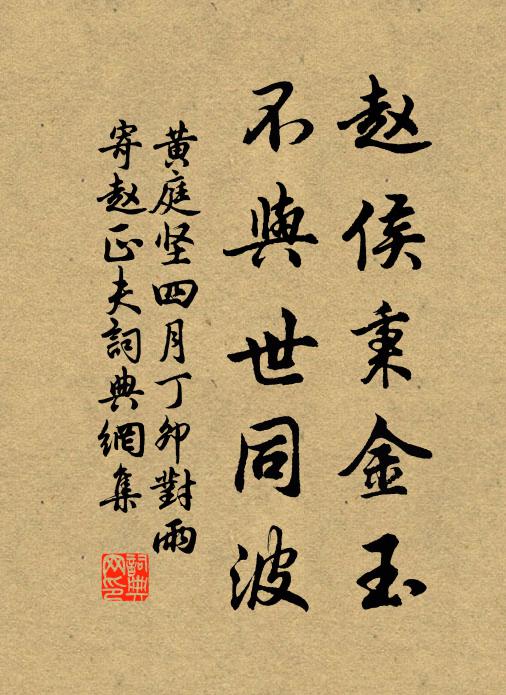 赵侯秉金玉
不與世同波
黄庭坚四月丁卯對雨
寄赵正夫詞典網集
詞典
网印